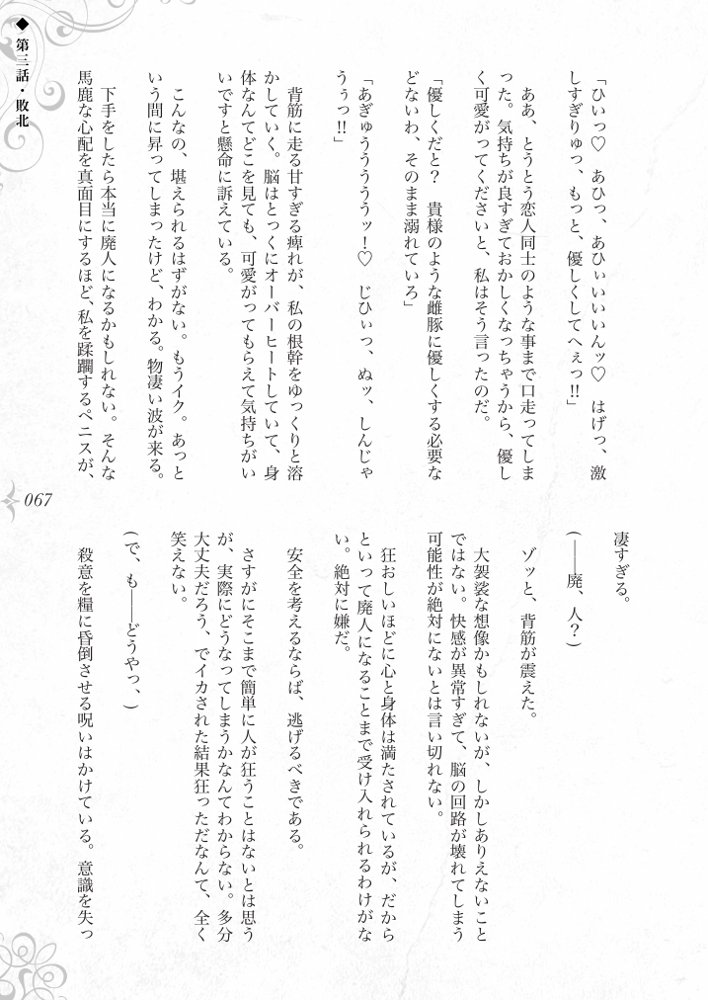 ◆ 第三話・敗北
「ひいっ♡　あひっ、あひぃいいいんッ♡　はげっ、激
しすぎりゅっ、もっと、優しくしてへぇっ!!」
　ああ、とうとう恋人同士のような事まで口走ってしま
った。気持ちが良すぎておかしくなっちゃうから、優し
く可愛がってくださいと、私はそう言ったのだ。
「優しくだと？　貴様のような雌豚に優しくする必要な
どないわ、そのまま溺れていろ」
「あぎゅうううううッ！♡　じひぃっ、ぬッ、しんじゃ
うぅっ!!」
　背筋に走る甘すぎる痺れが、私の根幹をゆっくりと溶
かしていく。脳はとっくにオーバーヒートしていて、身
体なんてどこを見ても、可愛がってもらえて気持ちがい
いですと懸命に訴えている。
　こんなの、堪えられるはずがない。もうイク。あっと
いう間に昇ってしまったけど、わかる。物凄い波が来る。
　下手をしたら本当に廃人になるかもしれない。そんな
馬鹿な心配を真面目にするほど、私を蹂躙するペニスが、
凄すぎる。
(――廃、人？)
　ゾッと、背筋が震えた。
　大袈裟な想像かもしれないが、しかしありえないこと
ではない。快感が異常すぎて、脳の回路が壊れてしまう
可能性が絶対にないとは言い切れない。
　狂おしいほどに心と身体は満たされているが、だから
といって廃人になることまで受け入れられるわけがな
い。絶対に嫌だ。
　安全を考えるならば、逃げるべきである。
　さすがにそこまで簡単に人が狂うことはないとは思う
が、実際にどうなってしまうかなんてわからない。多分
大丈夫だろう、でイカされた結果狂っただなんて、全く
笑えない。
(で、も――どうやっ、)
　殺意を糧に昏倒させる呪いはかけている。意識を失っ
067